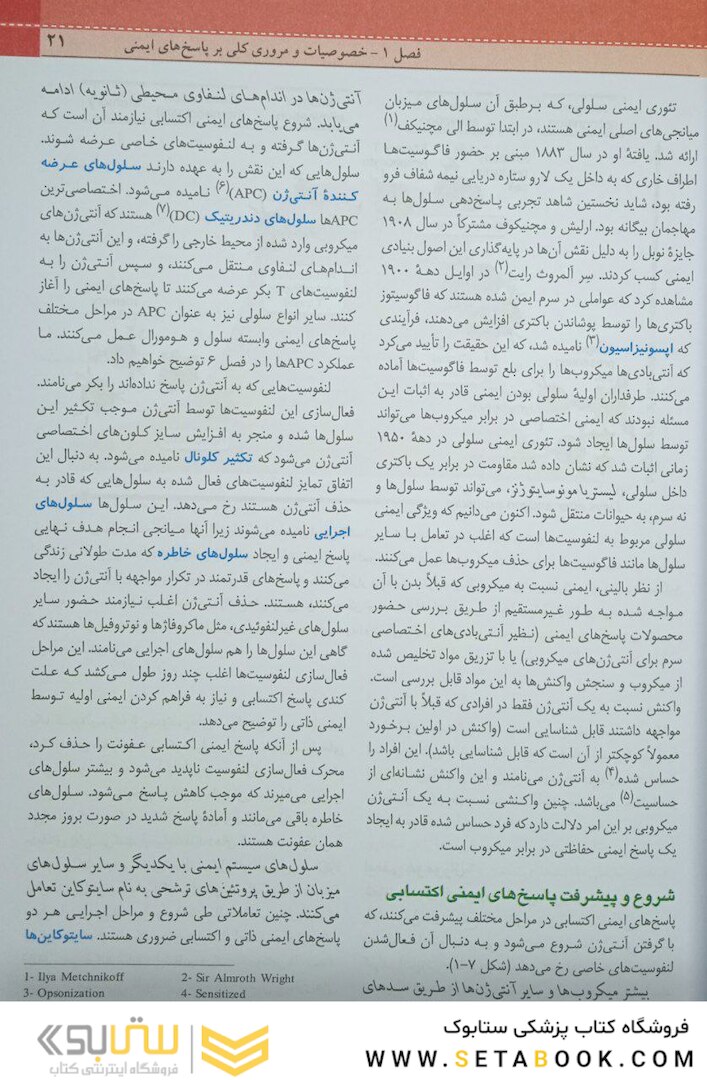 فصل ۱ - خصوصیات و مروری کلی بر پاسخ‌های ایمنی ۲۱
تئوری ایمنی سلولی، که برطبق آن سلول‌های میزبان
میانجی‌های اصلی ایمنی هستند، در ابتدا توسط الی مچنیکف(۱)
ارائه شد. یافتهٔ او در سال ۱۸۸۳ مبنی بر حضور فاگوسیت‌ها
اطراف خاری که به داخل یک لارو ستاره دریایی نیمه شفاف فرو
رفته بود، شاید نخستین شاهد تجربی پاسخ‌دهی سلول‌ها به
مهاجمان بیگانه بود. ارلیش و مچنیکوف مشترکاً در سال ۱۹۰۸
جایزهٔ نوبل را به دلیل نقش آن‌ها در پایه‌گذاری این اصول بنیادی
ایمنی کسب کردند. سِر آلمروث رایت(۲) در اوایل دههٔ ۱۹۰۰
مشاهده کرد که عواملی در سرم ایمن شده هستند که فاگوسیتوز
باکتری‌ها را توسط پوشاندن باکتری افزایش می‌دهند، فرآیندی
که اپسونیزاسیون(۳) نامیده شد، که این حقیقت را تأیید می‌کرد
که آنتی‌بادی‌ها میکروب‌ها را برای بلع توسط فاگوسیت‌ها آماده
می‌کنند. طرفداران اولیهٔ سلولی بودن ایمنی قادر به اثبات این
مسئله نبودند که ایمنی اختصاصی در برابر میکروب‌ها می‌تواند
توسط سلول‌ها ایجاد شود. تئوری ایمنی سلولی در دههٔ ۱۹۵۰
زمانی اثبات شد که نشان داده شد مقاومت در برابر یک باکتری
داخل سلولی، لیستریا مونوسایتوژنز، می‌تواند توسط سلول‌ها و
نه سرم، به حیوانات منتقل شود. اکنون می‌دانیم که ویژگی ایمنی
سلولی مربوط به لنفوسیت‌ها است که اغلب در تعامل با سایر
سلول‌ها مانند فاگوسیت‌ها برای حذف میکروب‌ها عمل می‌کنند.
از نظر بالینی، ایمنی نسبت به میکروبی که قبلاً بدن با آن
مواجه شده به طور غیرمستقیم از طریق بررسی حضور
محصولات پاسخ‌های ایمنی (نظیر آنتی‌بادی‌های اختصاصی
سرم برای آنتی‌ژن‌های میکروبی) یا با تزریق مواد تخلیص شده
از میکروب و سنجش واکنش‌ها به این مواد قابل بررسی است.
واکنش نسبت به یک آنتی‌ژن فقط در افرادی که قبلاً با آنتی‌ژن
مواجهه داشتند قابل شناسایی است (واکنش در اولین برخورد
معمولاً کوچکتر از آن است که قابل شناسایی باشد). این افراد را
حساس شده(۴) به آنتی‌ژن می‌نامند و این واکنش نشانه‌ای از
حساسیت(۵) می‌باشد. چنین واکنشی نسبت به یک آنتی‌ژن
میکروبی بر این امر دلالت دارد که فرد حساس شده قادر به ایجاد
یک پاسخ ایمنی حفاظتی در برابر میکروب است.
شروع و پیشرفت پاسخ‌های ایمنی اکتسابی
پاسخ‌های ایمنی اکتسابی در مراحل مختلف پیشرفت می‌کنند، که
با گرفتن آنتی‌ژن شروع می‌شود و به دنبال آن فعال‌شدن
لنفوسیت‌های خاصی رخ می‌دهد (شکل ۷-۱).
بیشتر میکروب‌ها و سایر آنتی‌ژن‌ها از طریق سدهای
آنتی‌ژن‌ها در اندام‌های لنفاوی محیطی (ثانویه) ادامه
می‌یابد. شروع پاسخ‌های ایمنی اکتسابی نیازمند آن است که
آنتی‌ژن‌ها گرفته و به لنفوسیت‌های خاصی عرضه شوند.
سلول‌هایی که این نقش را به عهده دارند سلول‌های عرضه
کنندهٔ آنتی‌ژن (APC)(۶) نامیده می‌شود. اختصاصی‌ترین
APCها سلول‌های دندریتیک (DC)(۷) هستند که آنتی‌ژن‌های
میکروبی وارد شده از محیط خارجی را گرفته، و این آنتی‌ژن‌ها به
اندام‌های لنفاوی منتقل می‌کنند، و سپس آنتی‌ژن را به
لنفوسیت‌های T بکر عرضه می‌کنند تا پاسخ‌های ایمنی را آغاز
کنند. سایر انواع سلولی نیز به عنوان APC در مراحل مختلف
پاسخ‌های ایمنی وابسته سلول و هومورال عمل می‌کنند. ما
عملکرد APCها را در فصل ۶ توضیح خواهیم داد.
لنفوسیت‌هایی که به آنتی‌ژن پاسخ نداده‌اند را بکر می‌نامند.
فعال‌سازی این لنفوسیت‌ها توسط آنتی‌ژن موجب تکثیر این
سلول‌ها شده و منجر به افزایش سایز کلون‌های اختصاصی
آنتی‌ژن می‌شود که تکثیر کلونال نامیده می‌شود. به دنبال این
اتفاق تمایز لنفوسیت‌های فعال شده به سلول‌هایی که قادر به
حذف آنتی‌ژن هستند رخ می‌دهد. این سلول‌ها سلول‌های
اجرایی نامیده می‌شوند زیرا آنها میانجی انجام هدف نهایی
پاسخ ایمنی و ایجاد سلول‌های خاطره که مدت طولانی زندگی
می‌کنند و پاسخ‌های قدرتمند در تکرار مواجهه با آنتی‌ژن را ایجاد
می‌کنند، هستند. حذف آنتی‌ژن اغلب نیازمند حضور سایر
سلول‌های غیرلنفوئیدی، مثل ماکروفاژها و نوتروفیل‌ها هستند که
گاهی این سلول‌ها را هم سلول‌های اجرایی می‌نامند. این مراحل
فعال‌سازی لنفوسیت‌ها اغلب چند روز طول می‌کشد که علت
کندی پاسخ اکتسابی و نیاز به فراهم کردن ایمنی اولیه توسط
ایمنی ذاتی را توضیح می‌دهد.
پس از آنکه پاسخ ایمنی اکتسابی عفونت را حذف کرد،
محرک فعال‌سازی لنفوسیت ناپدید می‌شود و بیشتر سلول‌های
اجرایی می‌میرند که موجب کاهش پاسخ می‌شود. سلول‌های
خاطره باقی می‌مانند و آمادهٔ پاسخ شدید در صورت بروز مجدد
همان عفونت هستند.
سلول‌های سیستم ایمنی با یکدیگر و سایر سلول‌های
میزبان از طریق پروتئین‌های ترشحی به نام سایتوکاین تعامل
می‌کنند. چنین تعاملاتی طی شروع و مراحل اجرایی هر دو
پاسخ‌های ایمنی ذاتی و اکتسابی ضروری هستند. سایتوکاین‌ها
1- Ilya Metchnikoff 2- Sir Almroth Wright
3- Opsonization 4- Sensitized
فروشگاه کتاب پزشکی ستابوک
WWW.SETABOOK.COM
ستابوک
فروشگاه اینترنتی کتاب